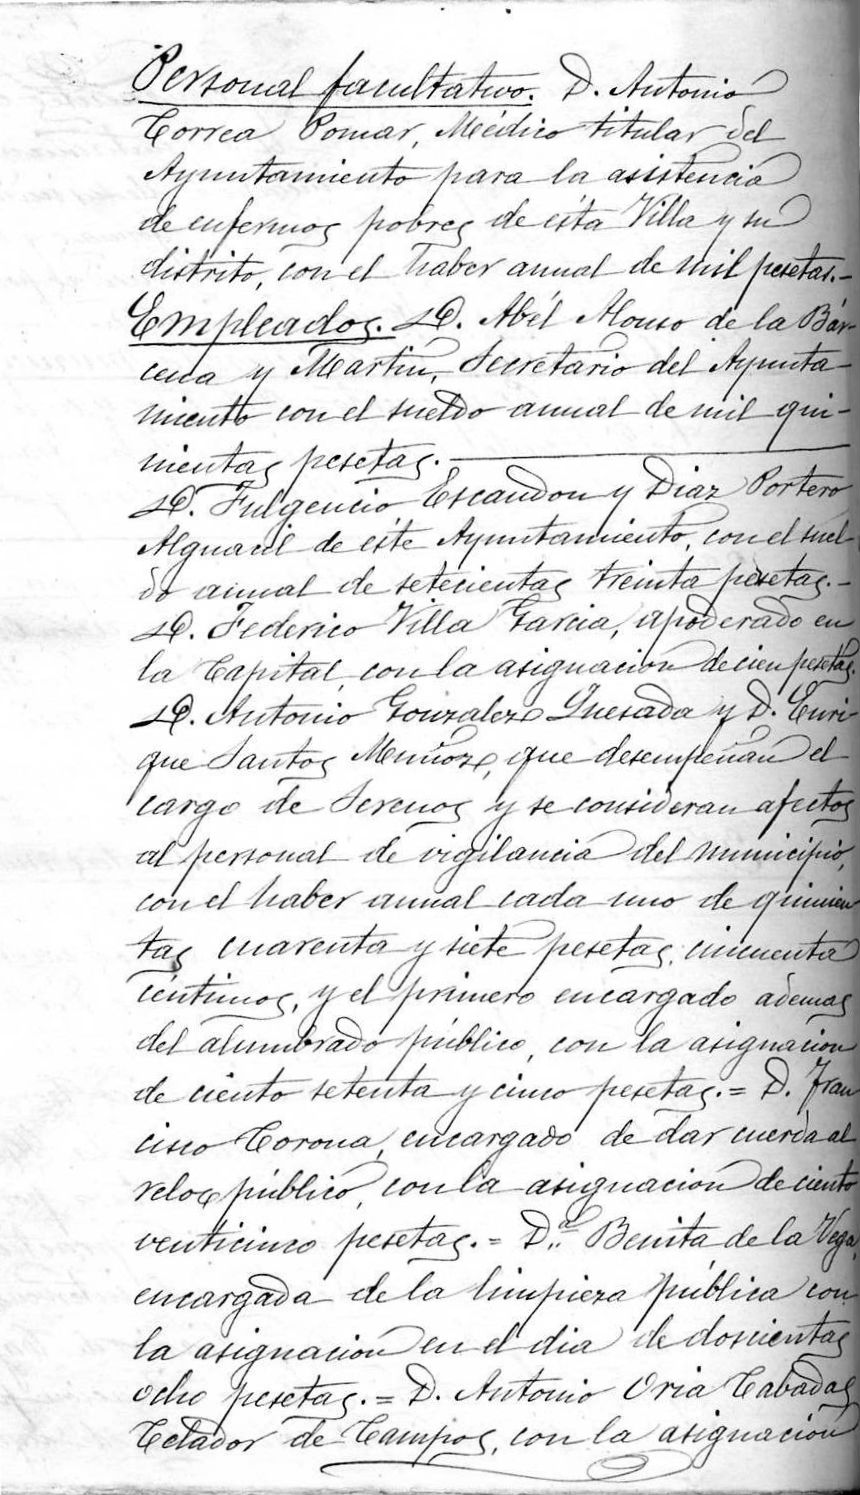 Personal facultativo. D. Antonio
Correa Pomar, Médico titular del
Ayuntamiento para la asistencia
de enfermos pobres de ésta Villa y su
distrito, con el haber anual de mil pesetas.-
Empleados. D. Abél Alonso de la Bár-
cena y Martin, Secretario del Ayunta-
miento con el sueldo anual de mil qui-
nientas pesetas.
D. Fulgencio Escandon y Diaz Portero
Alguacil de éste Ayuntamiento, con el suel-
do anual de setecientas treinta pesetas.-
D. Federico Villa Garcia, apoderado en
la Capital, con la asignacion de cien pesetas.
D. Antonio Gonzalez Quesada y D. Enri-
que Santos Muñoz, que desempeñan el
cargo de Serenos y se consideran afectos
al personal de vigilancia del municipio,
con el haber anual cada uno de quinien
tas cuarenta y siete pesetas, cincuenta
céntimos, y el primero encargado ademas
del alumbrado público, con la asignacion
de ciento setenta y cinco pesetas.= D. Fran
cisco Corona, encargado de dar cuerda al
relox público, con la asignacion de ciento
venticinco pesetas.= D.ª Benita de la Vega,
encargada de la limpieza pública con
la asignacion en el dia de doscientas
ocho pesetas.= D. Antonio Oria Tabadas
Celador de Campos, con la asignacion